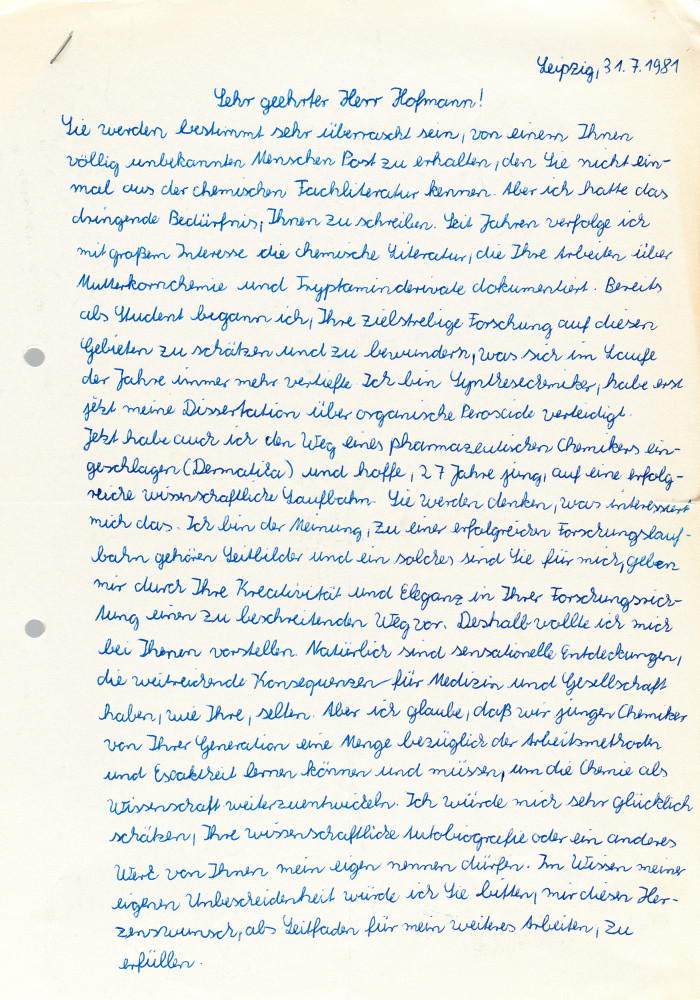 Leipzig, 31.7.1981
Sehr geehrter Herr Hofmann!
Sie werden bestimmt sehr überrascht sein, von einem Ihnen
völlig unbekannten Menschen Post zu erhalten, den Sie nicht ein-
mal aus der chemischen Fachliteratur kennen. Aber ich hatte das
dringende Bedürfnis, Ihnen zu schreiben. Seit Jahren verfolge ich
mit großem Interesse die chemische Literatur, die Ihre Arbeiten über
Mutterkornchemie und Tryptaminderivate dokumentiert. Bereits
als Student begann ich, Ihre zielstrebige Forschung auf diesen
Gebieten zu schätzen und zu bewundern, was sich im Laufe
der Jahre immer mehr vertiefte. Ich bin Synthesechemiker, habe erst
jetzt meine Dissertation über organische Peroxide verteidigt.
Jetzt habe auch ich den Weg eines pharmazeutischen Chemikers ein-
geschlagen (Dermatika) und hoffe, 27 Jahre jung, auf eine erfolg-
reiche wissenschaftliche Laufbahn. Sie werden denken, was interessiert
mich das. Ich bin der Meinung, zu einer erfolgreichen Forschungslauf-
bahn gehören Leitbilder und ein solches sind Sie für mich, geben
mir durch Ihre Kreativität und Eleganz in Ihrer Forschungsrich-
tung einen zu beschreitenden Weg vor. Deshalb wollte ich mich
bei Ihenen vorstellen. Natürlich sind sensationelle Entdeckungen,
die weitreichende Konsequenzen für Medizin und Gesellschaft
haben, wie Ihre, selten. Aber ich glaube, daß wir jungen Chemiker
von Ihrer Generation eine Menge bezüglich der Arbeitsmethoden
und Exaktheit lernen können und müssen, um die Chemie als
Wissenschaft weiterzuentwickeln. Ich würde mich sehr glücklich
schätzen, Ihre wissenschaftliche Autobiografie oder ein anderes
Werk von Ihnen mein eigen nennen dürfen. Im Wissen meiner
eigenen Unbescheidenheit würde ich Sie bitten, mir diesen Her-
zenswunsch, als Leitfaden für mein weiteres Arbeiten, zu
erfüllen.